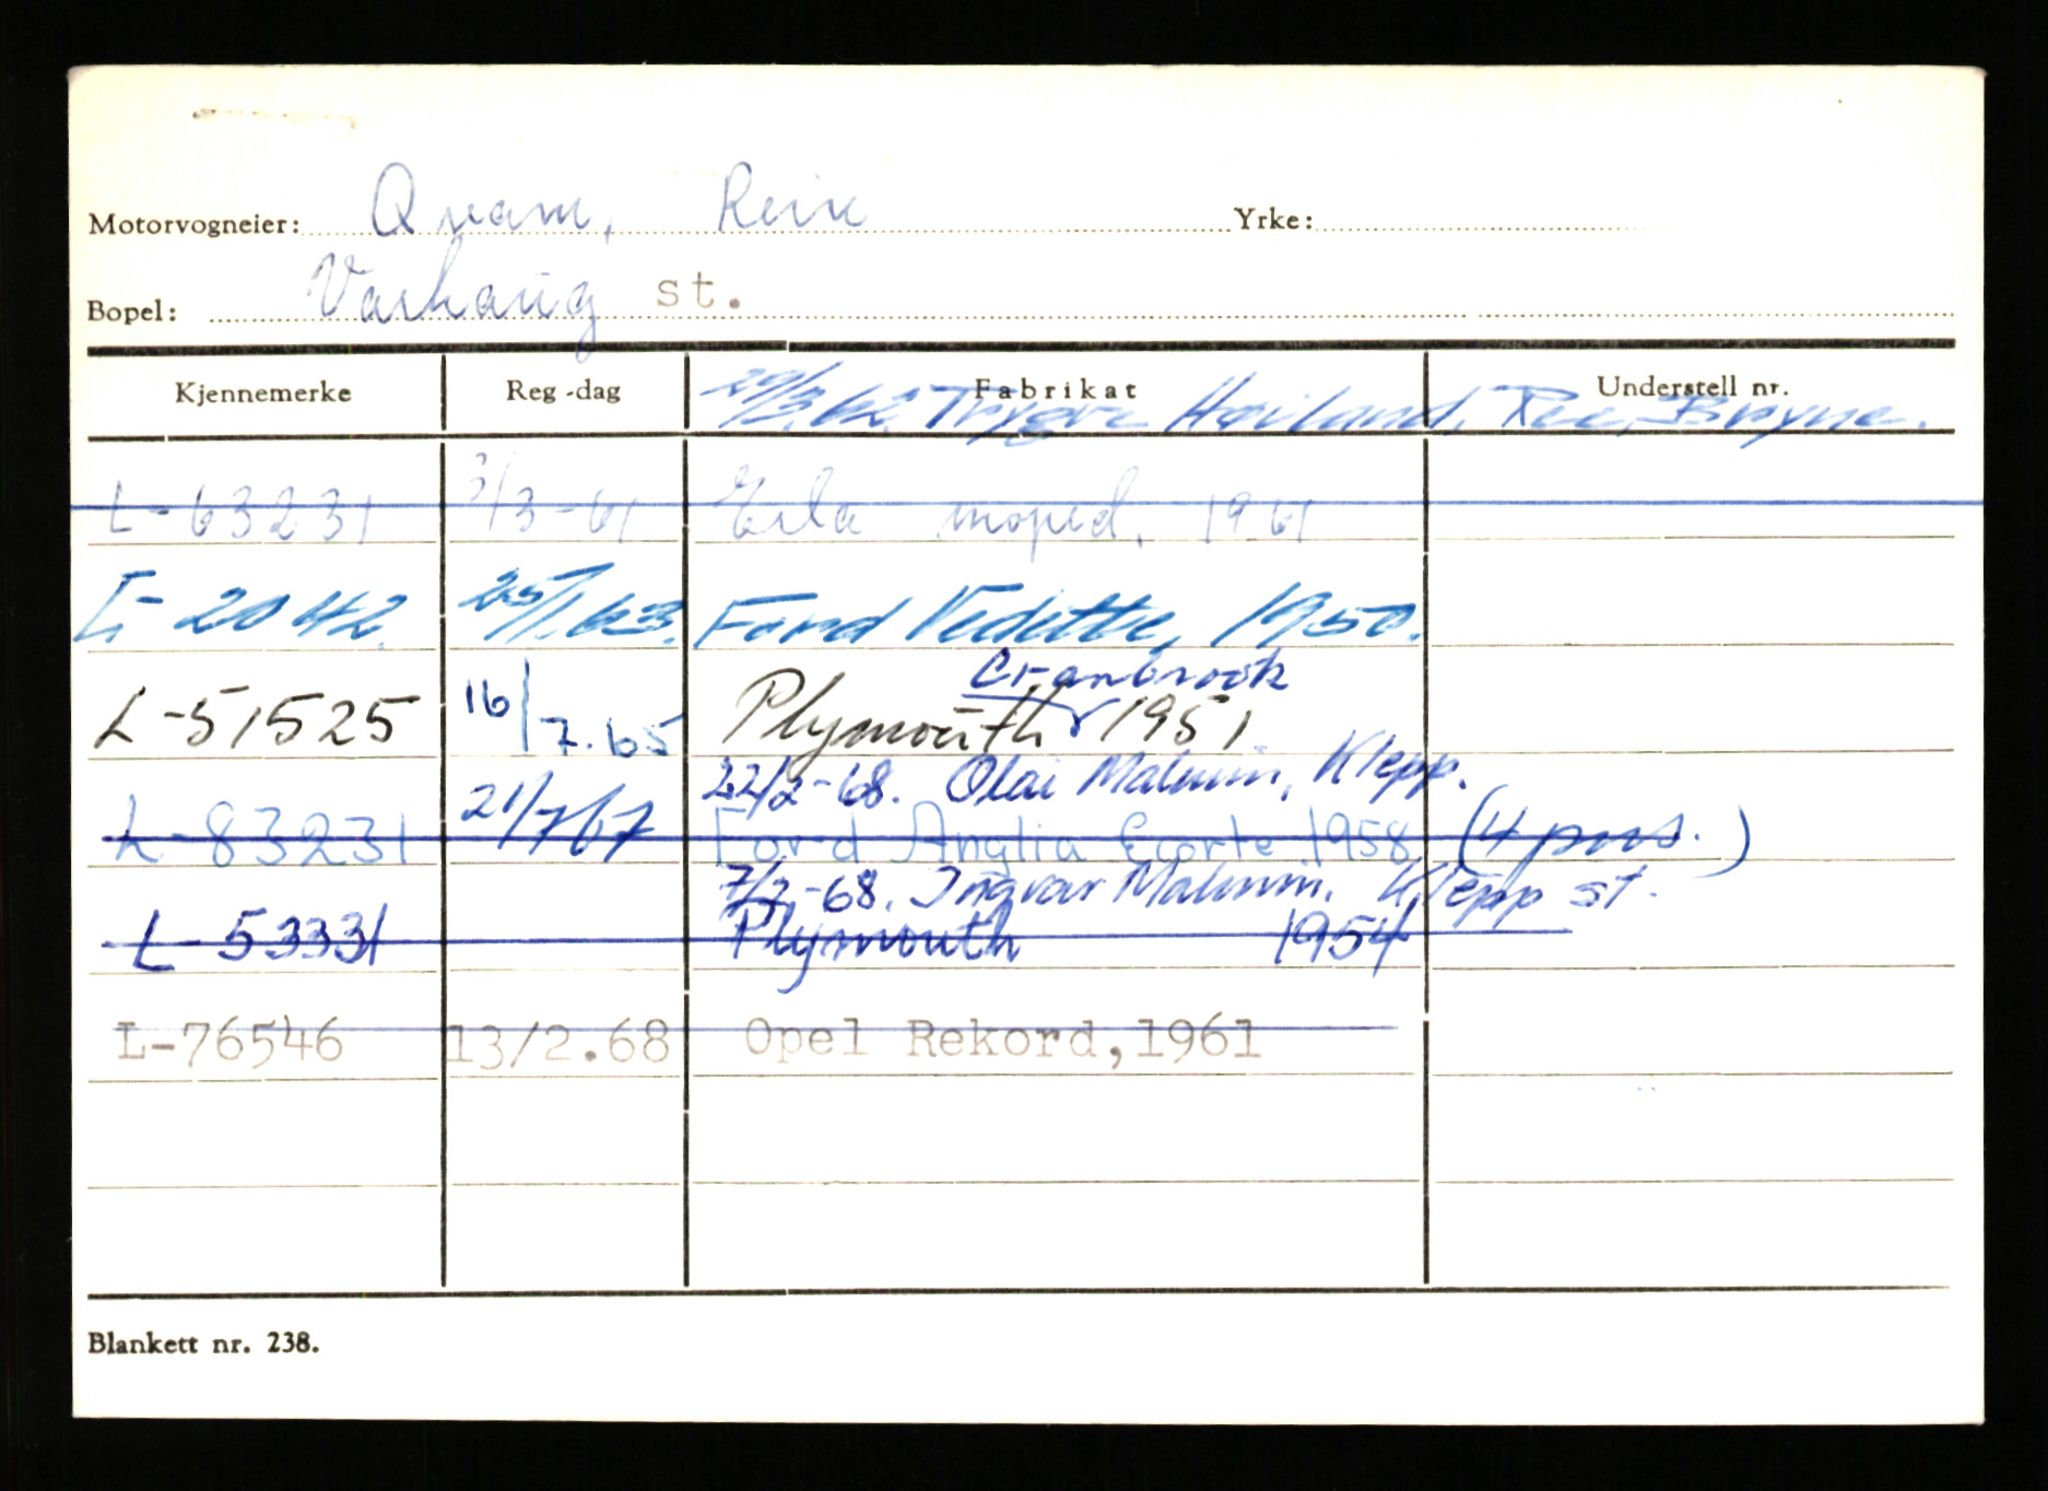 Motorvogneier: Qvam, Reix Yrke:
Bopel: Varhaug st.
Kjennemerke Reg.-dag Fabrikat Understell nr.
29/3.62. Trygve Haviland, Ree, Bryne.
L-63231 3/3-61 Erla moped, 1961
L-2042. 25/1.63. Ford Vedette, 1950.
Cranbrook
L-51525 16/7.65 Plymouth 1951
22/2-68. Olai Malmin, Klepp.
L-83231 21/7 67 Ford Anglia 1958 (4 pers.)
7/2-68. Ingvar Malmin. Klepp st.
L-53331 Plymouth 1954
L-76546 13/2.68 Opel Rekord,1961
Blankett nr. 238.